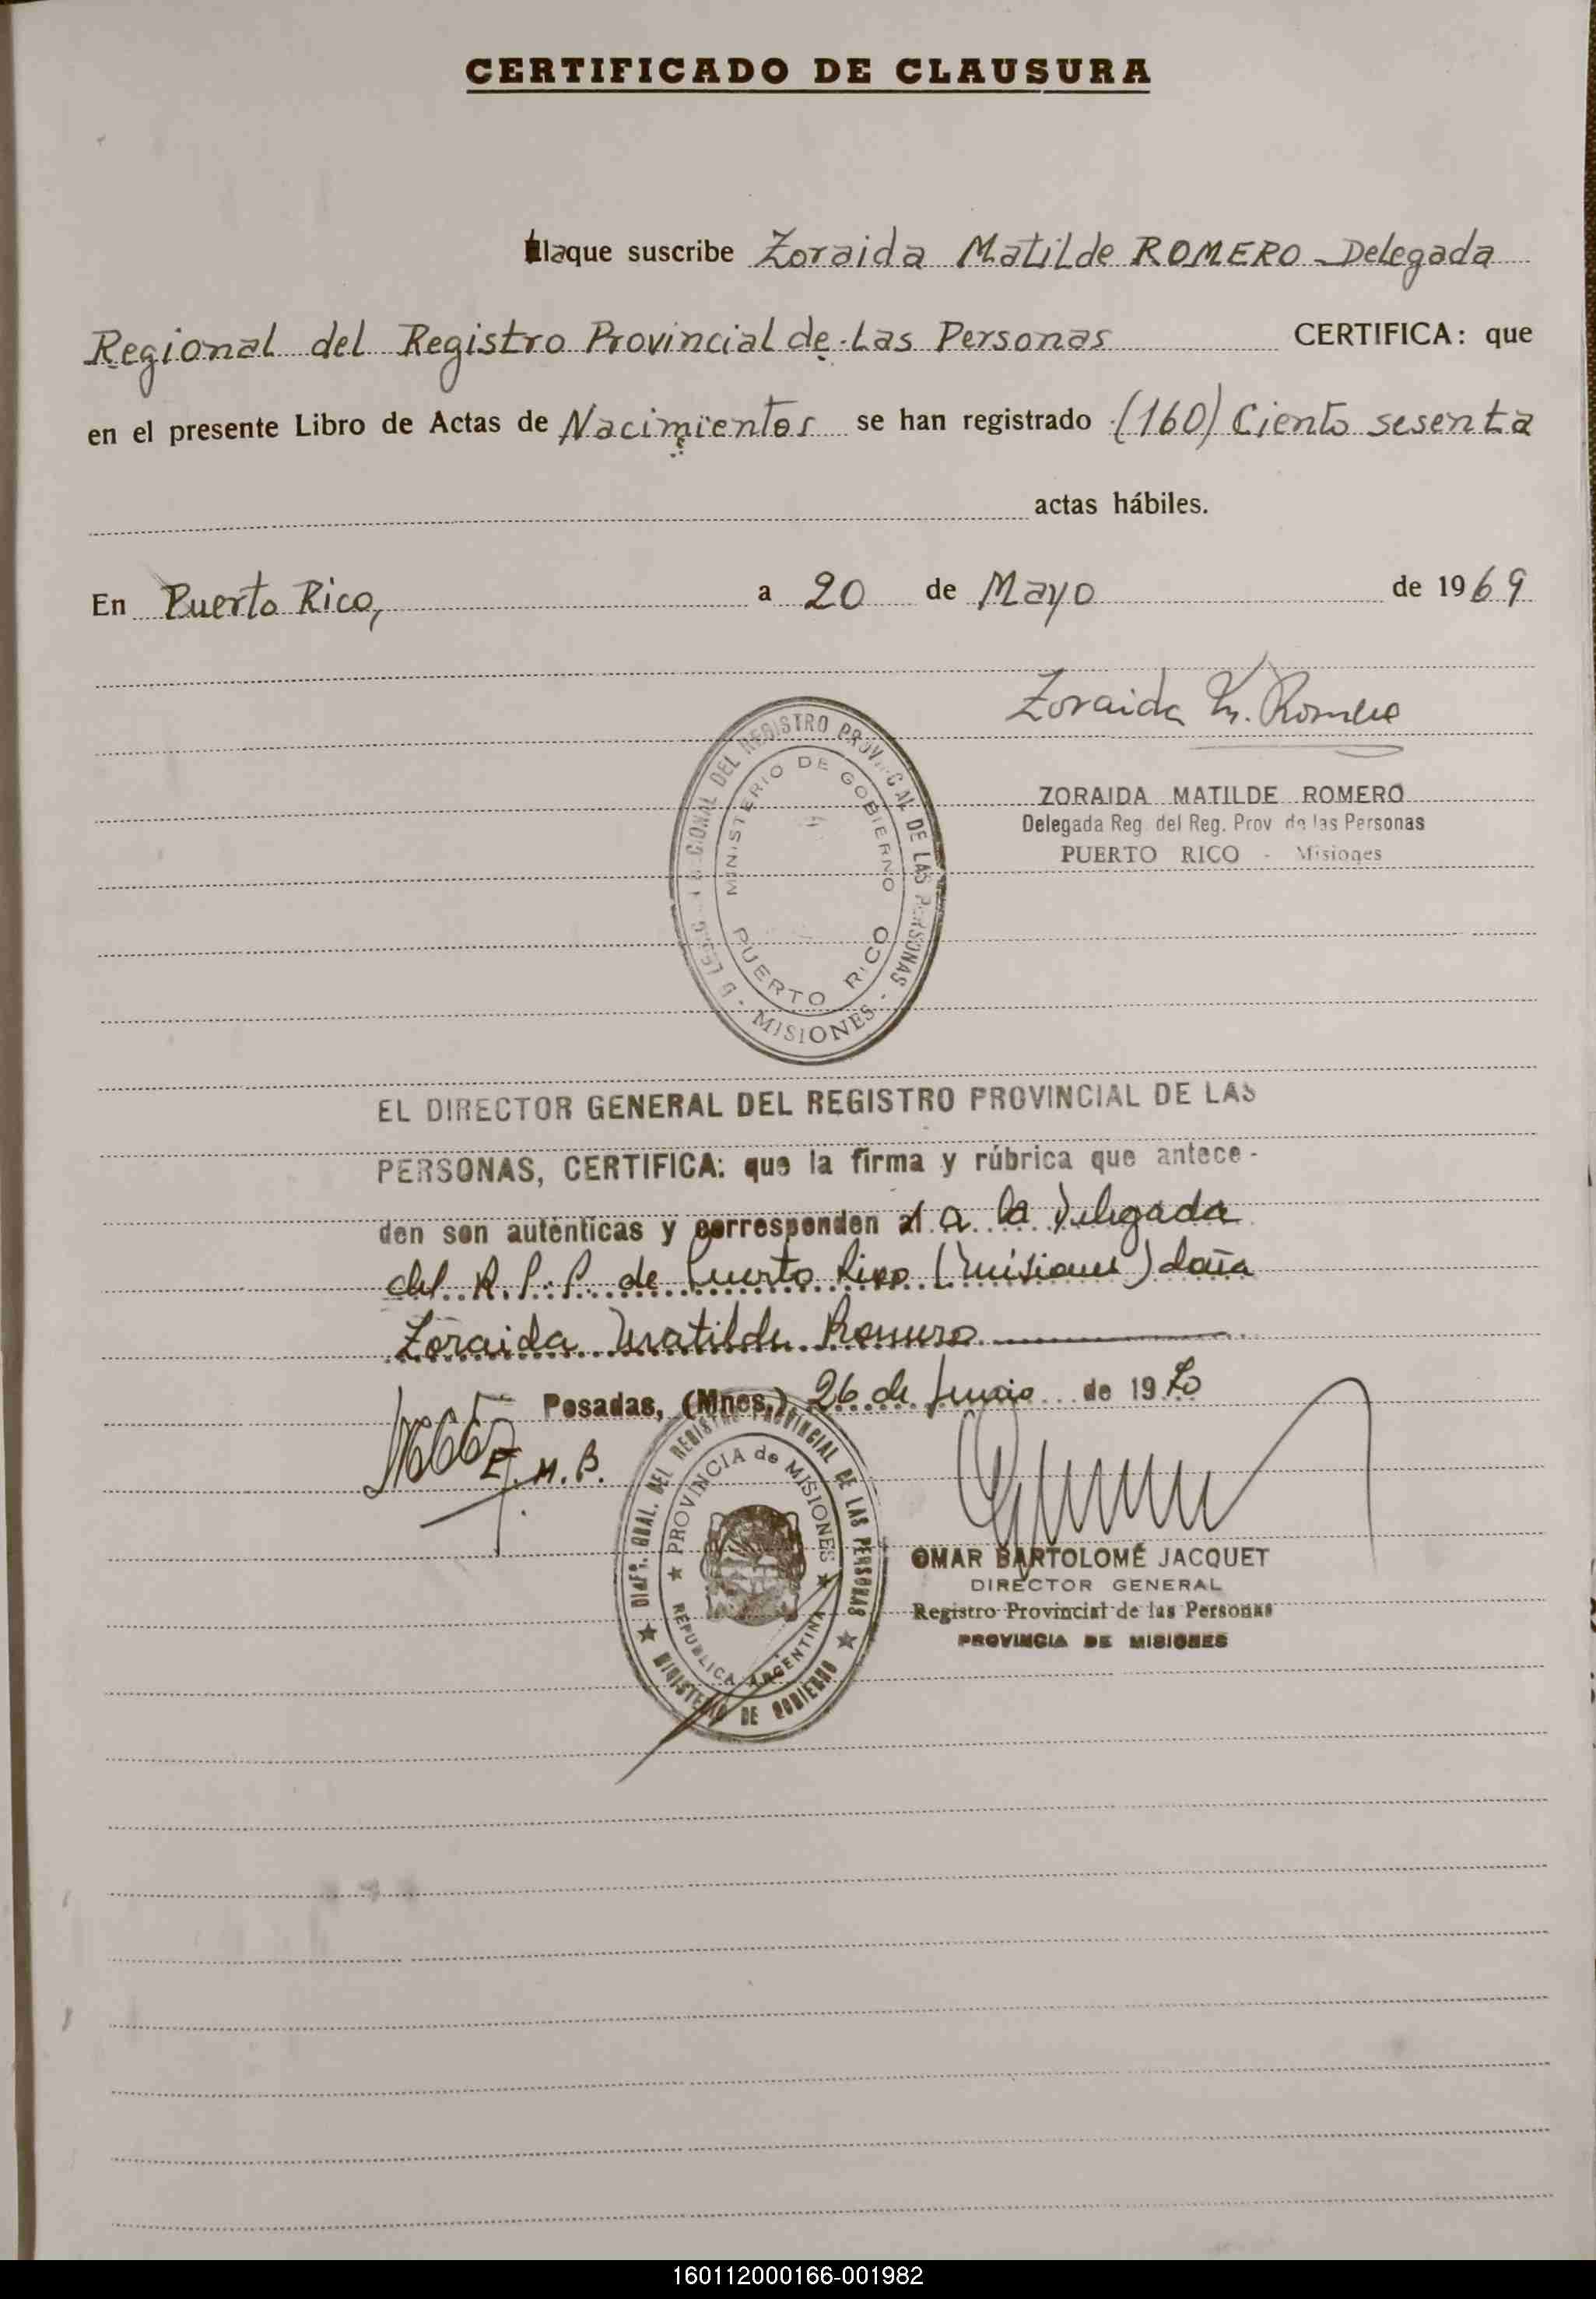 CERTIFICADO DE CLAUSURA
laque suscribe Zoraida Matilde ROMERO - Delegada
Regional del Registro Provincial de Las Personas CERTIFICA: que
en el presente Libro de Actas de Nacimientos se han registrado (160) Ciento sesenta
actas hábiles.
En Puerto Rico, a 20 de Mayo de 1969
Zoraida M. Romero
ZORAIDA MATILDE ROMERO
Delegada Reg. del Reg. Prov. de las Personas
PUERTO RICO - Misiones
REGIONAL DEL REGISTRO PROVINCIAL DE LAS PERSONAS - MISIONES -
MINISTERIO DE GOBIERNO
PUERTO RICO
EL DIRECTOR GENERAL DEL REGISTRO PROVINCIAL DE LAS
PERSONAS, CERTIFICA: que la firma y rúbrica que antece-
den son auténticas y corresponden al a la Delegada
del R.P.P. de Puerto Rico (Misiones) doña
Zoraida Matilde Romero
Posadas, (Mnes.) 26 de Junio de 1970
E.M.B.
DIREC. GRAL. DEL REGISTRO PROVINCIAL DE LAS PERSONAS
PROVINCIA de MISIONES
REPUBLICA ARGENTINA
MINISTERIO DE GOBIERNO
OMAR BARTOLOMÉ JACQUET
DIRECTOR GENERAL
Registro Provincial de las Personas
PROVINCIA DE MISIONES
160112000166-001982